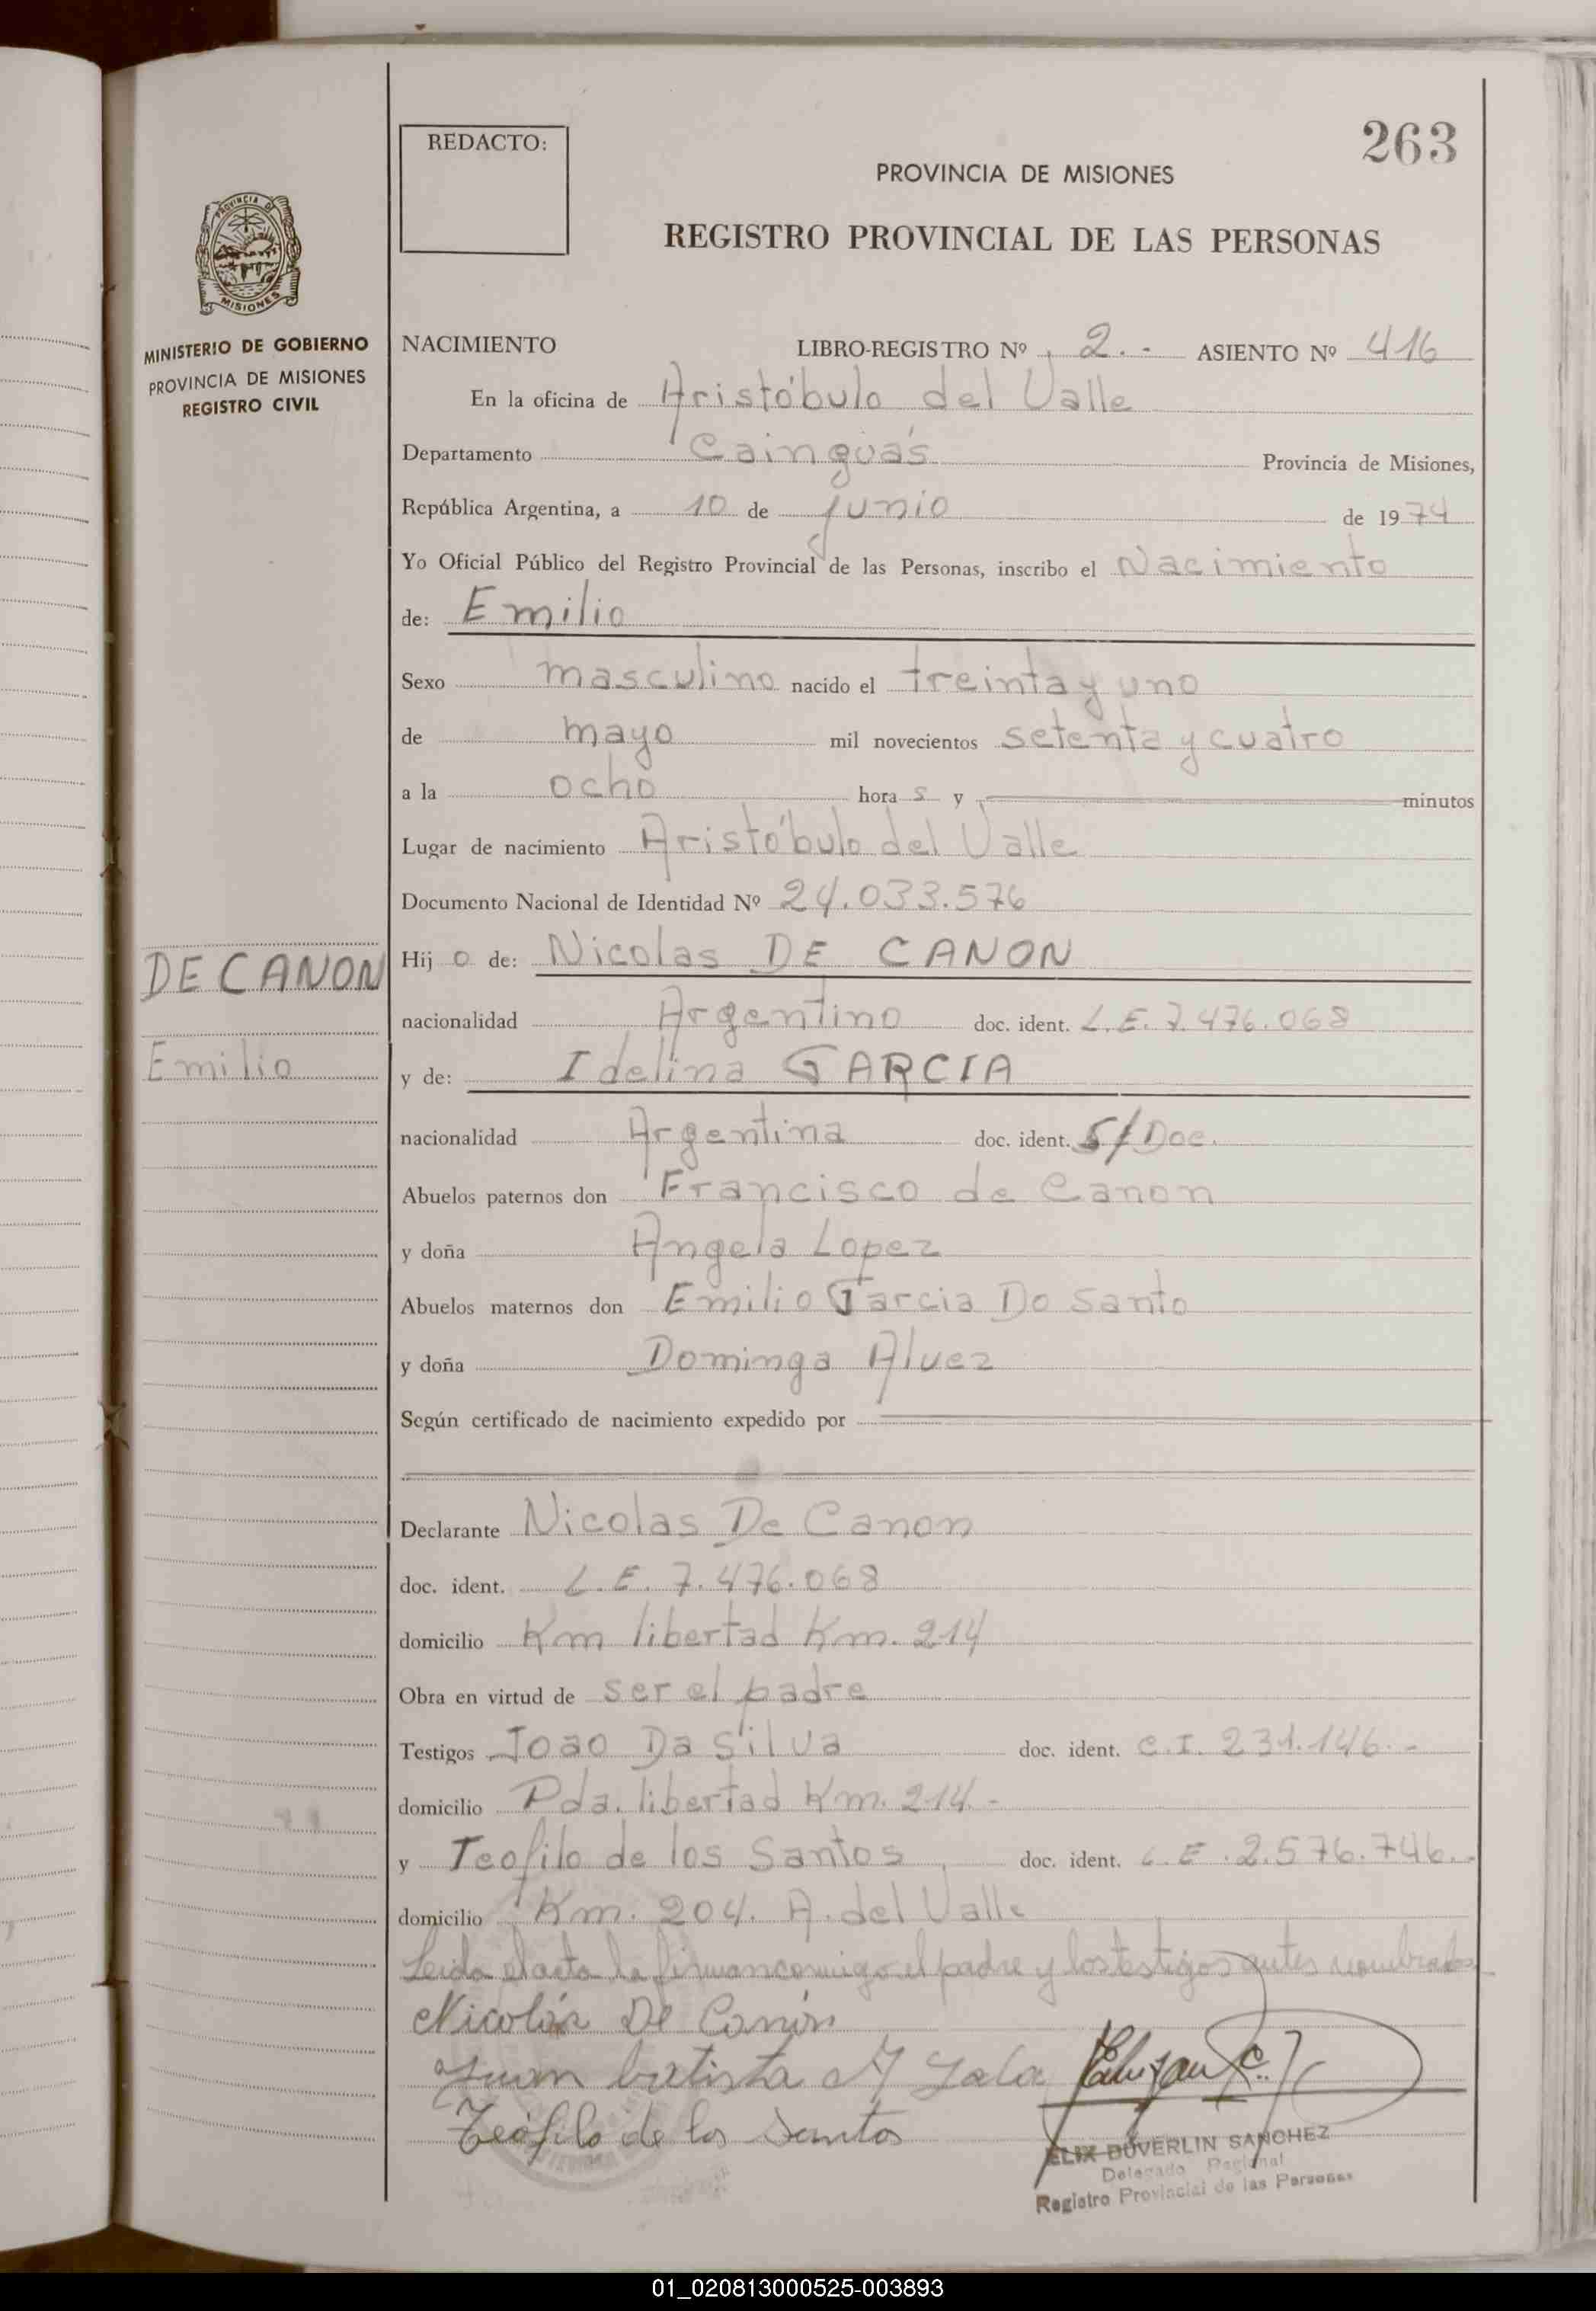 REDACTO:
263
PROVINCIA DE MISIONES
REGISTRO PROVINCIAL DE LAS PERSONAS
PROVINCIA DE
MISIONES
MINISTERIO DE GOBIERNO
PROVINCIA DE MISIONES
REGISTRO CIVIL
NACIMIENTO LIBRO-REGISTRO Nº 2.- ASIENTO Nº 416
En la oficina de Aristóbulo del Valle
Departamento Cainguás Provincia de Misiones,
República Argentina, a 10 de junio de 1974
Yo Oficial Público del Registro Provincial de las Personas, inscribo el Nacimiento
de: Emilio
Sexo masculino nacido el treinta y uno
de mayo mil novecientos setenta y cuatro
a la ocho hora s y minutos
Lugar de nacimiento Aristóbulo del Valle
Documento Nacional de Identidad Nº 24.033.576
DE CANON
Emilio
Hij o de: Nicolas DE CANON
nacionalidad Argentino doc. ident. L.E. 7.476.068
y de: Idelina GARCIA
nacionalidad Argentina doc. ident. S/Doc.
Abuelos paternos don Francisco de Canon
y doña Angela Lopez
Abuelos maternos don Emilio Garcia Do Santo
y doña Dominga Alvez
Según certificado de nacimiento expedido por
Declarante Nicolas De Canon
doc. ident. L.E. 7.476.068
domicilio Km libertad Km. 214
Obra en virtud de ser el padre
Testigos Joao Da Silva doc. ident. C.I. 231.146.-
domicilio Pda. libertad Km. 214.-
y Teofilo de los Santos doc. ident. L.E. 2.576.746.-
domicilio Km. 204. A. del Valle
Leida el acta la firman conmigo el padre y los testigos antes nombrados
Nicolás De Canón
Juan batista
Teófilo de los Santos
ELIX DUVERLIN SANCHEZ
Delegado Regional
Registro Provincial de las Personas
01_020813000525-003893